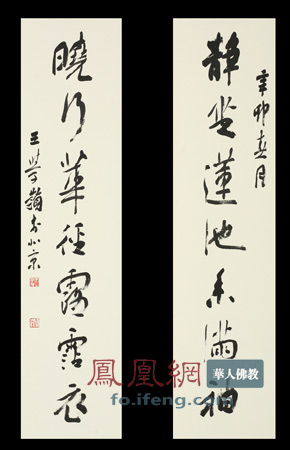 辛卯春月
靜坐蓮池香滿袖
曉行華徑露霑衣
王學嶺於北京
鳳凰網
華人佛教
fo.ifeng.com